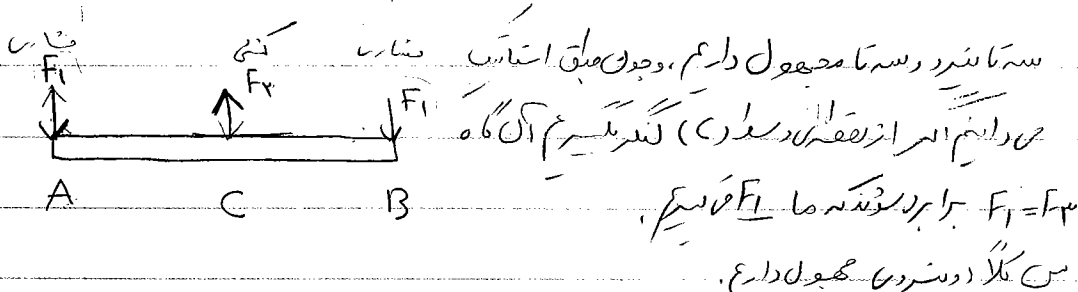 فشاری کششی فشاری
F₁ F₂ F₁
A C B
سه تا نیرو و سه تا مجهول داریم، و چون طبق استاتیک
می‌دانیم اگر از نقطه‌ی وسط (C) لنگر بگیریم آن گاه
F₁=F₃ برابر می‌شوند که ما F₁ می‌گیریم.
پس کلاً دو نیروی مجهول داریم.